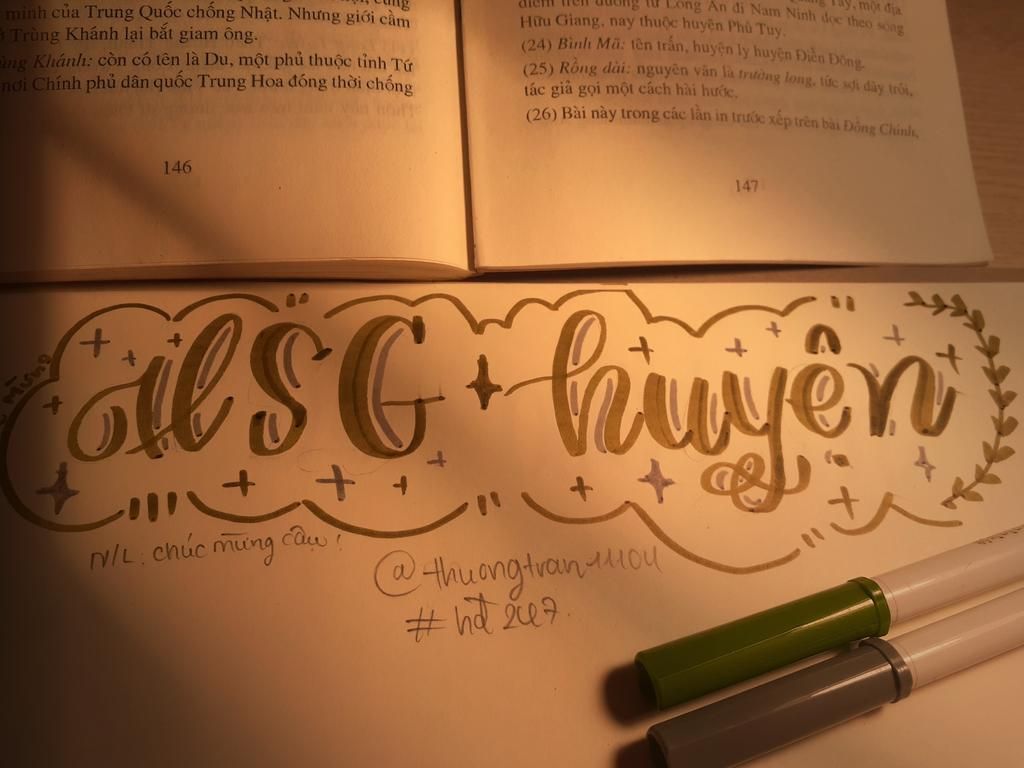 minh của Trung Quốc chống Nhật. Nhưng giới cầm
Trùng Khánh lại bắt giam ông.
Khánh: còn có tên là Du, một phủ thuộc tỉnh Tứ
nơi Chính phủ dân quốc Trung Hoa đóng thời chống
146
điểm trên đường từ Long An đi Nam Ninh dọc theo sông
Hữu Giang, nay thuộc huyện Phù Tuy.
(24) Bình Mã: tên trấn, huyện lỵ huyện Điền Đông.
(25) Rồng dài: nguyên văn là trường long, tức sợi dây trói,
tác giả gọi một cách hài hước.
(26) Bài này trong các lần in trước xếp trên bài Đồng Chính,
147
HSG huyện
N/L: chúc mừng cậu!
@thuongtran11104
#hđ2647.